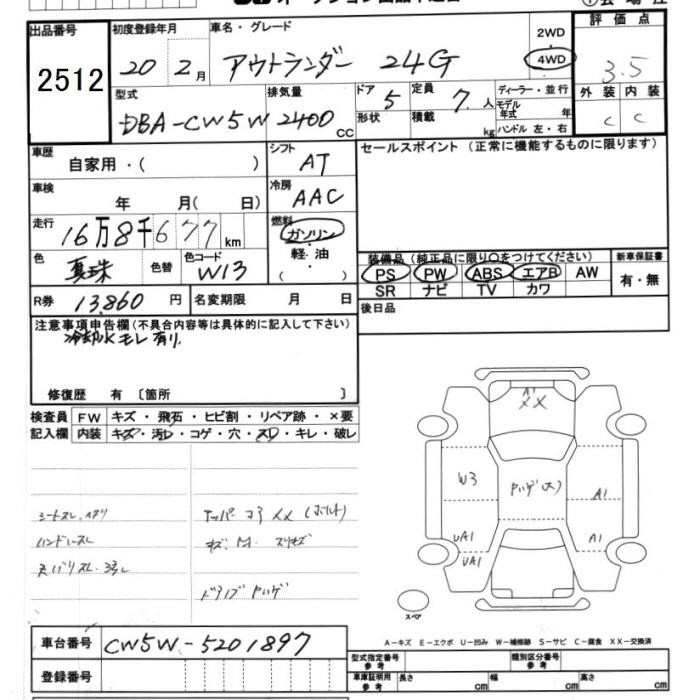 出品番号 初度登録年月 車名・グレード 2WD 評価点
2512 20 2月 アウトランダー 24G 4WD 3.5
型式 排気量 ドア 定員 ディーラー・並行 外装 内装
DBA-CW5W 2400 CC 5 7人 モデル年式 年 C C
形状 積載 kg ハンドル 左・右
車歴 シフト セールスポイント(正常に機能するものに限ります)
自家用・( ) AT
車検 冷房
年 月( 日) AAC
走行 燃料
16万8千677km ガソリン
色 色替 色コード 軽・油 装備品(純正品に限り○をつけてください) 新車保証書
真珠 W13 ( ) PS PW ABS エアB AW 有・無
SR ナビ TV カワ
R券 13,860円 名変期限 月 日 後日品
注意事項申告欄(不具合内容等は具体的に記入して下さい)
冷却水モレ有り.
修復歴 有 〔箇所 〕
検査員 FW キズ・飛石・ヒビ割・リペア跡・×要
記入欄 内装 キズ・汚レ・コゲ・穴・スレ・キレ・破レ
A1
XX
W3
A1
UA1 A1
UA1
シートスレ.ヘタリ アッパーコア XX (ボルト)
ハンドルスレ
スペア
A-キズ E-エクボ U-凹み W-補修跡 S-サビ C-腐食 XX-交換済
車台番号 CW5W-5201897
型式指定番号 参考 類別区分番号 参考
登録番号
車庫証明用 参考 長さ cm 幅 cm 高さ cm